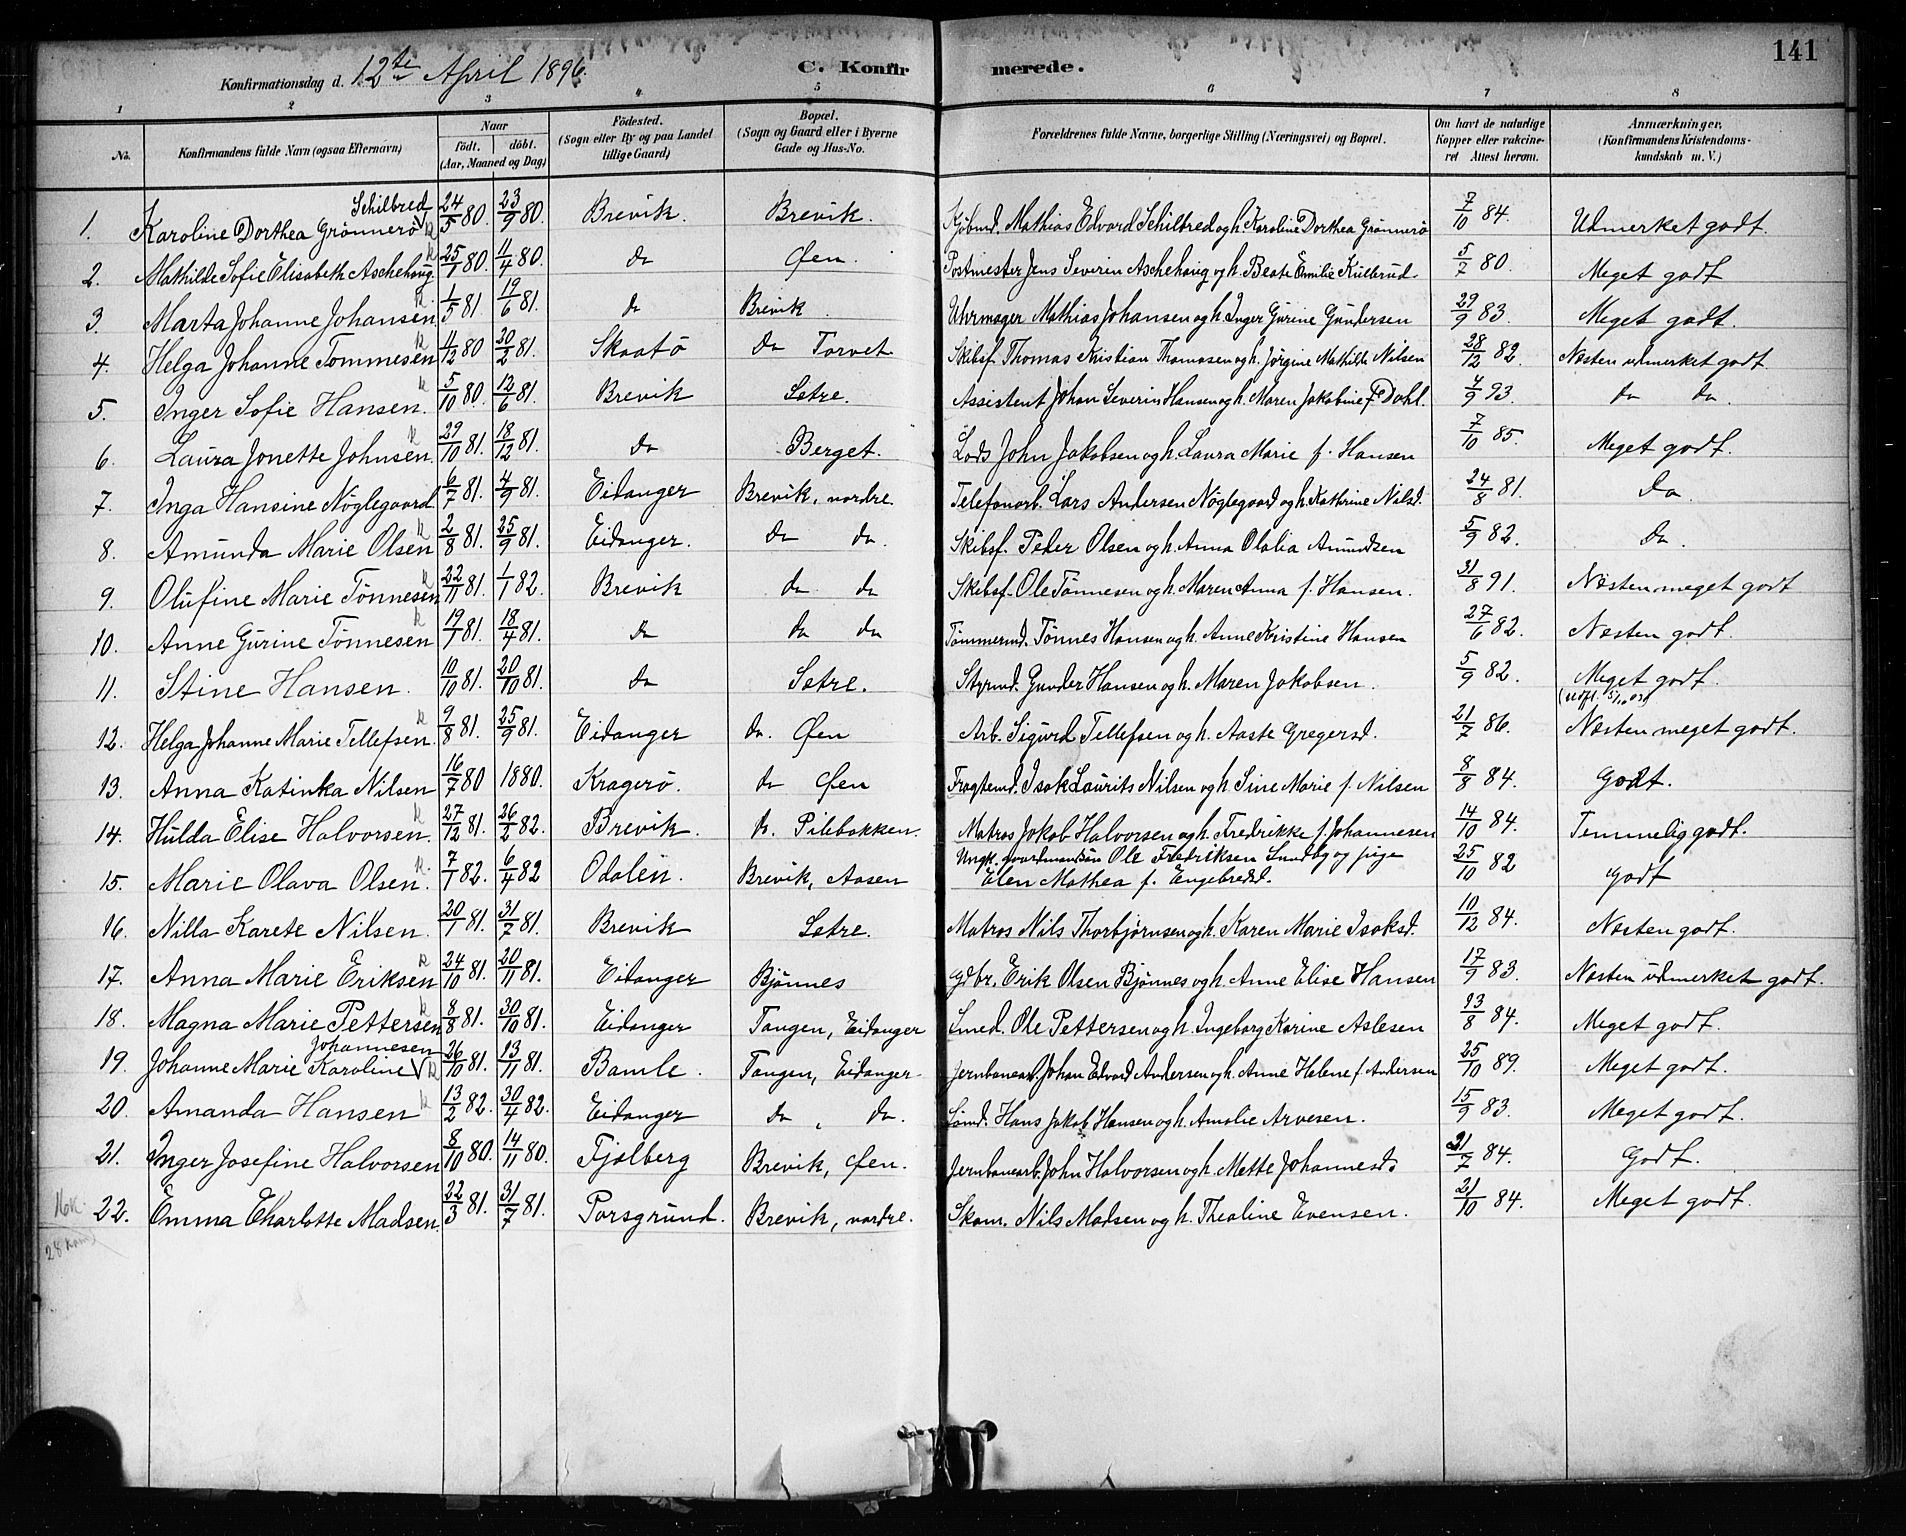 141
Konfirmationsdag d. 12te April 1896.
C. Konfirmerede.
1 2 3 4 5 6 7 8
No. | Konfirmandens fulde Navn (ogsaa Efternavn) | Naar födt. döbt. (Aar, Maaned og Dag) | Födested. (Sogn eller By og paa Landet tillige Gaard) | Bopæl. (Sogn og Gaard eller i Byerne Gade og Hus-No. | Forældrenes fulde Navne, borgerlige Stilling (Næringsvei) og Bopæl. | Om havt de naturlige Kopper eller vakcineret Attest herom. | Anmærkninger. (Konfirmandens Kristendomskundskab m. V.)
1. Karoline Dorthea Grönnerö Schilbred | 24/5 80. | 23/9 80. | Brevik. | Brevik. | Kjöbmd. Mathias Edvard Schilbred og h. Karoline Dorthea Grönnerö | 7/10 84. | Udmerket godt.
2. Mathilde Sofie Elisabeth Aschehoug | 25/1 80. | 11/4 80. | do | Øen. | Postmester Jens Severin Aschehoug og h. Beate Emilie Kullerud | 5/7 80. | Meget godt
3. Marta Johanne Johansen | 1/5 81. | 19/6 81. | do | Brevik. | Uhrmager Mathias Johansen og h. Inger Gurine Gundersen | 29/9 83. | Meget godt.
4. Helga Johanne Tommesen | 11/12 80 | 30/2 81. | Skaatö | do Torvet | Skibsf. Thomas Kristian Thomasen og h. Jörgine Mathilde Nilsen | 28/12 82. | Næsten udmerket godt
5. Inger Sofie Hansen. | 5/10 80. | 12/6 81. | Brevik | Setre. | Assistent Johan Severin Hansen og h. Maren Jakobine f. Dahl. | 4/9 93. | do do.
6. Laura Jonette Johnsen. | 29/10 81. | 18/12 81. | do | Berget. | Lods John Jakobsen og h. Laura Marie f. Hansen | 7/10 85. | Meget godt.
7. Inga Hansine Nöglegaard | 6/7 81. | 4/9 81. | Eidanger | Brevik, nordre. | Telefonarb. Lars Andersen Nöglegaard og h. Kathrine Nilsd. | 24/8 81. | Do.
8. Amunda Marie Olsen | 2/8 81. | 25/9 81. | Eidanger. | do do. | Skibsf. Peder Olsen og h. Anna Olalia Amundsen | 5/9 82. | Do.
9. Olufine Marie Tönnesen | 22/11 81. | 1/1 82. | Brevik | do do | Skibsf. Ole Tönnesen og h. Maren Anna f. Hansen. | 31/8 91. | Næsten meget godt
10. Anne Gurine Tönnesen | 19/1 81. | 18/4 81. | do | do do | Tömmermd. Tönnes Hansen og h. Anne Kristine Hansen | 27/6 82. | Næsten godt.
11. Stine Hansen. | 10/10 81. | 20/10 81. | do | Setre. | Styrmd. Gunder Hansen og h. Maren Jakobsen. | 5/9 82. | Meget godt.
12. Helga Johanne Marie Tellefsen. | 9/8 81. | 25/9 81. | Eidanger | do. Øen | Arb. Sigurd Tellefsen og h. Aaste Gregersd. | 21/7 86. | Næsten meget godt.
13. Anna Katinka Nilsen | 16/7 80 | 1880. | Kragerö. | do Øen | Fragtemd. Isak Laurits Nilsen og h. Sine Marie f. Nilsen | 8/8 84. | Godt.
14. Hulda Elise Halvorsen. | 27/12 81. | 26/2 82. | Brevik. | do. Pilebakken. | Matros Jakob Halvorsen og h. Fredrikke f. Johannesen | 14/10 84. | Temmelig godt.
15. Marie Olava Olsen. | 7/1 82. | 6/4 82 | Odalen. | Brevik, Aasen | Ungk. gaardmandssön Ole Fredriksen Sundby og pige Elen Mathea f. Engebredsd. | 25/10 82 | godt
16. Nilla Karete Nilsen. | 20/1 81. | 31/7 81. | Brevik | Setre. | Matros Nils Thorbjörnsen og h. Karen Marie Isaksd. | 10/12 84. | Næsten godt.
17. Anna Marie Eriksen | 24/10 81. | 20/11 81. | Eidanger | Bjönnes | Gdbr. Erik Olsen Bjönnes og h. Anne Elise Hansen | 17/9 83. | Næsten udmerket godt.
18. Magna Marie Pettersen | 8/8 81. | 30/10 81. | Eidanger | Tangen, Eidanger | Smed. Ole Pettersen og h. Ingeborg Karine Aslesen | 23/8 84. | Meget godt.
19. Johanne Marie Karoline Johannesen | 26/10 81. | 13/11 81. | Bamle. | Tangen, Eidanger | Jernbanearb. Johan Edvard Andersen og h. Anne Helene f. Andersen | 25/10 89. | Meget godt.
20. Amanda Hansen | 13/2 82. | 30/4 82. | Eidanger | do, do. | Sömd. Hans Jakob Hansen og h. Amalie Arvesen. | 15/9 83. | Meget godt.
21. Inger Josefine Halvorsen | 8/10 80. | 14/11 80. | Fjælberg | Brevik, Øen. | Jernbanearb. John Halvorsen og h. Mette Johannesd. | 21/7 84. | Godt.
22. Emma Charlotte Madsen. | 22/3 81. | 31/7 81. | Porsgrund. | Brevik, nordre. | Skom. Nils Madsen og h. Thealine Evensen. | 21/10 84. | Meget godt.